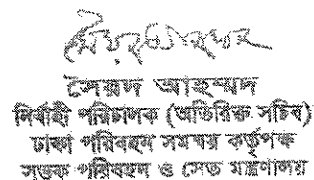 সৈয়দ আহম্মদ
নির্বাহী পরিচালক (অতিরিক্ত সচিব)
ঢাকা পরিবহন সমন্বয় কর্তৃপক্ষ
সড়ক পরিবহন ও সেতু মন্ত্রণালয়